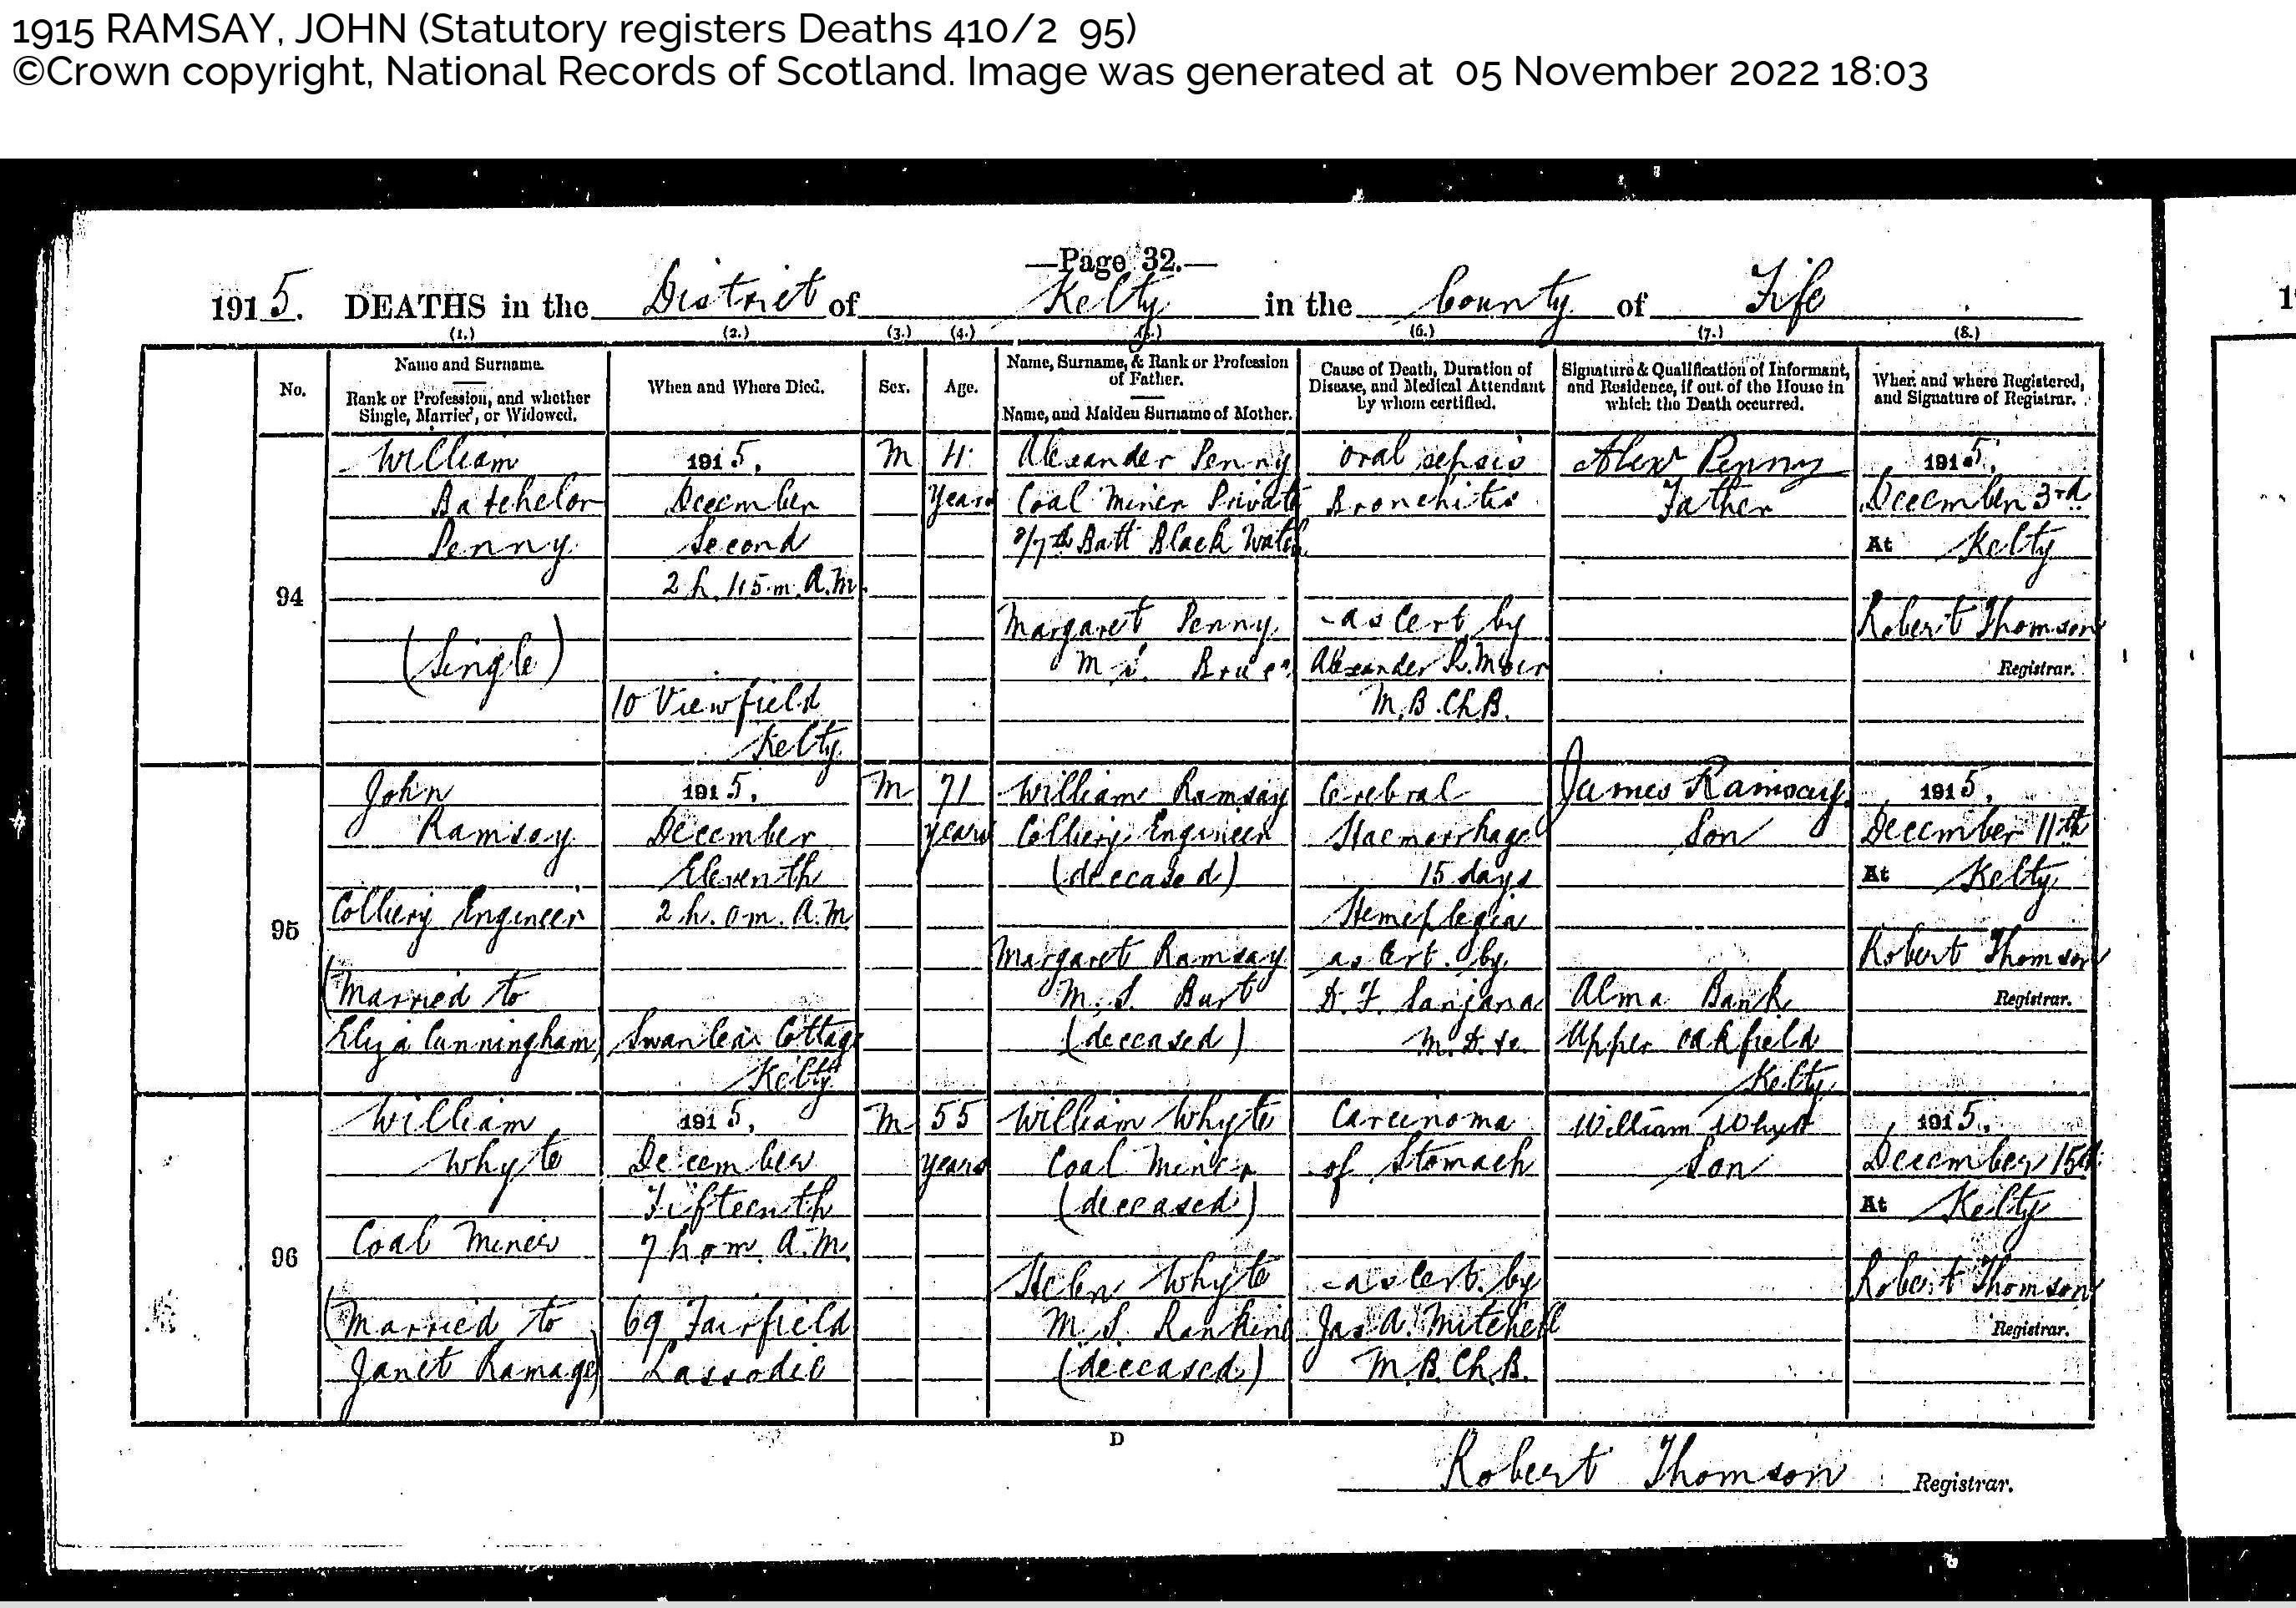 1915 RAMSAY, JOHN (Statutory registers Deaths 410/2 95)
©Crown copyright, National Records of Scotland. Image was generated at 05 November 2022 18:03
—Page 32.—
1915. DEATHS in the District of Kelty in the County of Fife
(1.) (2.) (3.) (4.) (5.) (6.) (7.) (8.)
No.
Name and Surname.
Rank or Profession, and whether
Single, Married, or Widowed.
When and Where Died.
Sex.
Age.
Name, Surname, & Rank or Profession
of Father.
Name, and Maiden Surname of Mother.
Cause of Death, Duration of
Disease, and Medical Attendant
by whom certified.
Signature & Qualification of Informant,
and Residence, if out of the House in
which the Death occurred.
When and where Registered,
and Signature of Registrar.
94
William
Batchelor
Penny
(Single)
1915.
December
Second
2 h. 15 m. A.M.
10 Viewfield
Kelty
M
4
years
Alexander Penny
Coal Miner Private
Batt Black Watch
Margaret Penny
M.S. Bruce
oral sepsis
Bronchitis
- as Cert by
Alexander R. Moir
M.B. Ch.B.
Alexr Penny
Father
1915.
December 3rd
At Kelty
Robert Thomson
Registrar.
95
John
Ramsay
Colliery Engineer
(Married to
Eliza Cunningham)
1915.
December
Eleventh
2 h. 0 m. A.M
Swanlea Cottage
Kelty
M
71
years
William Ramsay
Colliery Engineer
(deceased)
Margaret Ramsay
M.S. Burt
(deceased)
Cerebral
Haemorrhage
15 days
Hemeplegia
as Cert. by
D. F. Sanjana
M.D. &c.
James Ramsay.
Son
Alma Bank
Upper Oakfield
Kelty
1915.
December 11th
At Kelty
Robert Thomson
Registrar.
96
William
Whyte
Coal Miner
(Married to
Janet Ramage)
1915.
December
Fifteenth
7 h 0 m. A.M.
69 Fairfield
Lassodie
M
55
years
William Whyte
Coal Miner
(deceased)
Helen Whyte
M.S. Rankine
(deceased)
Carcinoma
of Stomach
- as Cert. by
Jas A. Mitchell
M.B. Ch.B.
William Whyte
Son
1915.
December 15th
At Kelty
Robert Thomson
Registrar.
D
Robert Thomson Registrar.